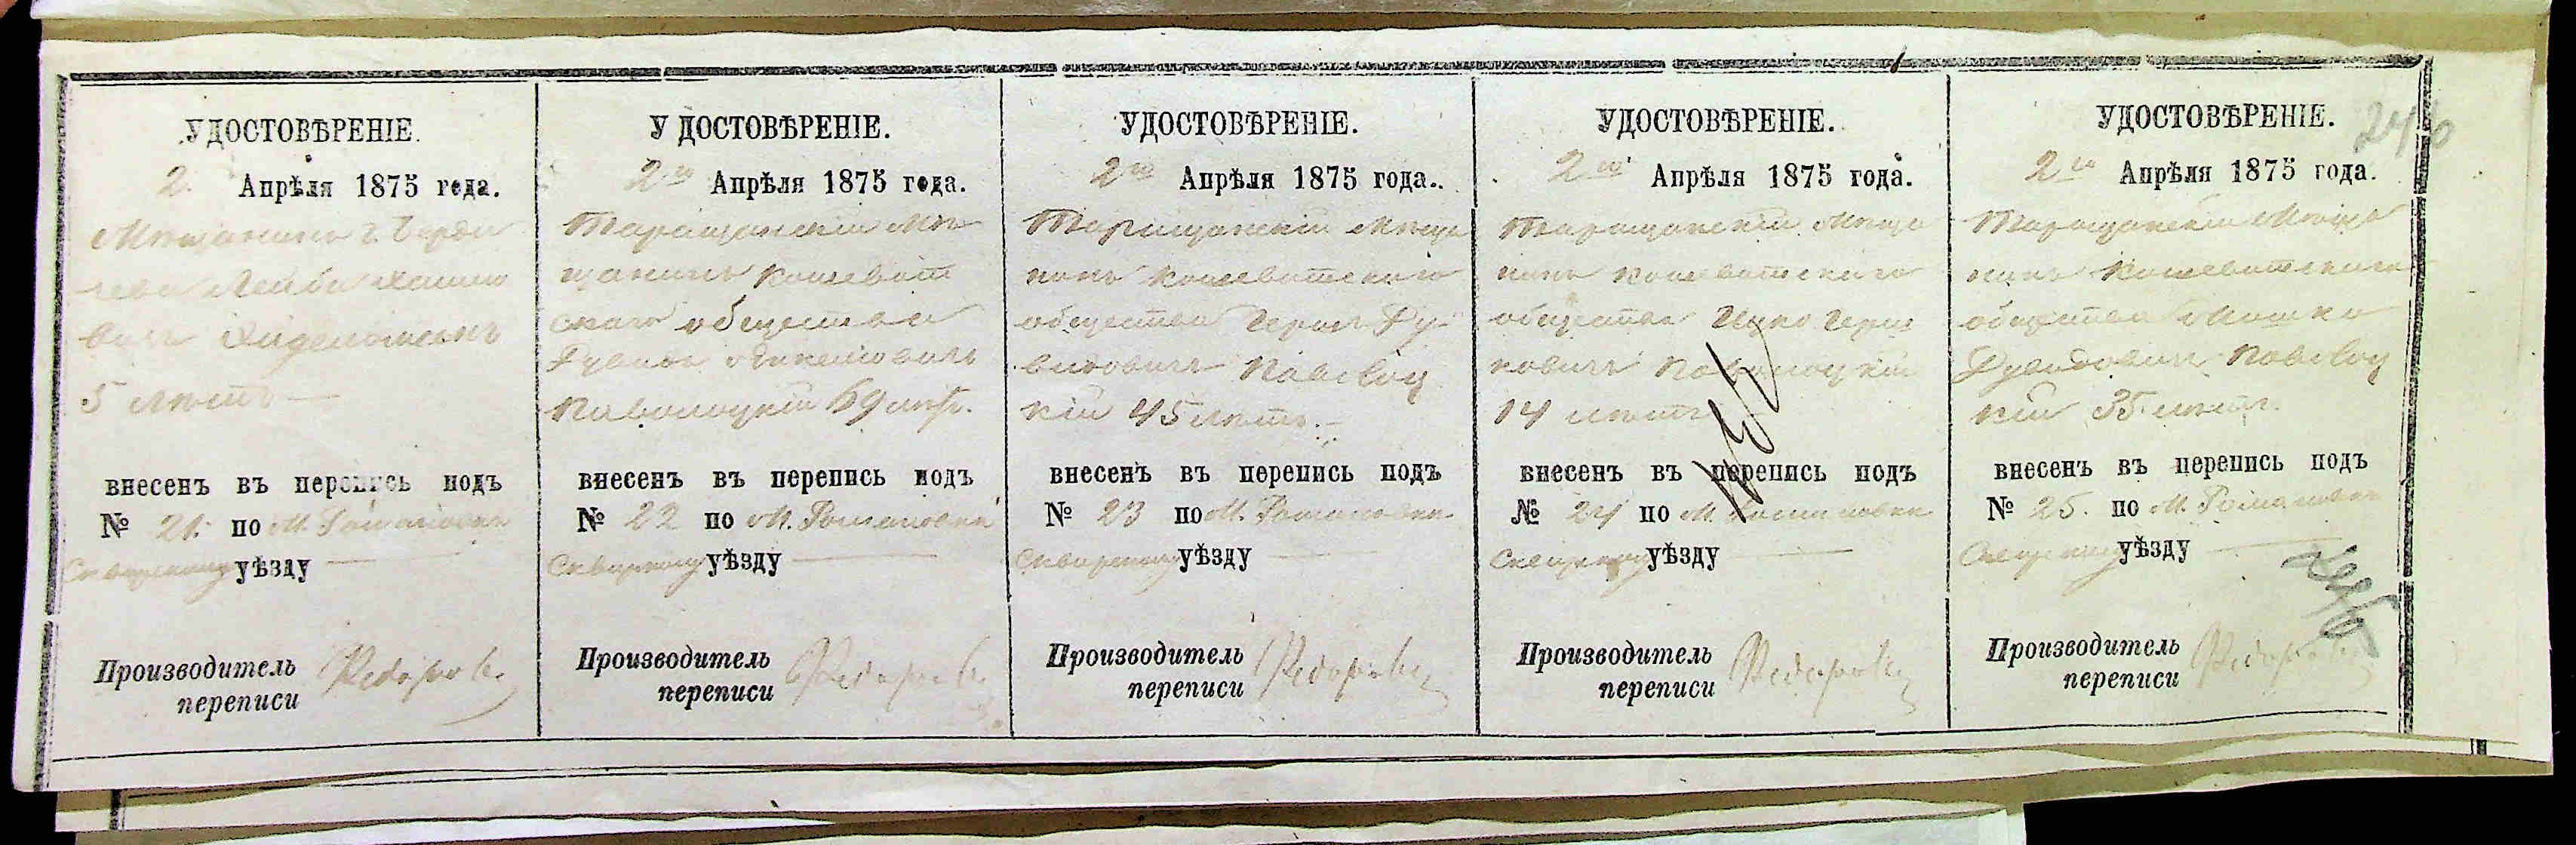 УДОСТОВѢРЕНІЕ.
2. Апрѣля 1875 года.
Мѣщанинъ г. Берди
чева Лейба
вичъ
5 лѣтъ —
внесенъ въ перепись подъ
№ 21. по М. Романовкѣ
Сквирскому уѣзду —
Производитель
переписи
УДОСТОВѢРЕНІЕ.
2го Апрѣля 1875 года.
Таращанскій Мѣ
щанинъ Кошеват
скаго общества
Рувинъ
Паволоцкій 69 лѣтъ.
внесенъ въ перепись подъ
№ 22 по М. Романовкѣ
Сквирскому уѣзду —
Производитель
переписи
УДОСТОВѢРЕНІЕ.
2го Апрѣля 1875 года.
Таращанскій Мѣща
нинъ Кошеватскаго
общества Герш Ру
виновичъ Паволоц
кій 45 лѣтъ.
внесенъ въ перепись подъ
№ 23 по М. Романовкѣ
Сквирскому уѣзду —
Производитель
переписи
УДОСТОВѢРЕНІЕ.
2го Апрѣля 1875 года.
Таращанскій Мѣща
нинъ Кошеватскаго
общества Ицко Герш
ковичъ Паволоцкій
14 лѣтъ
внесенъ въ перепись подъ
№ 24 по М. Романовкѣ
Сквирскому уѣзду —
Производитель
переписи
УДОСТОВѢРЕНІЕ.
2го Апрѣля 1875 года.
Таращанскій Мѣща
нинъ Кошеватскаго
общества Мошко
Рувиновичъ Паволоц
кій 35 лѣтъ.
внесенъ въ перепись подъ
№ 25. по М. Романовкѣ
Сквирскому уѣзду —
Производитель
переписи